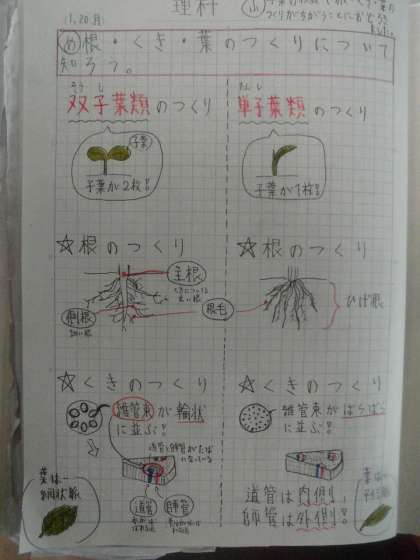 11.20.月
理科
め 根・くき・葉のつくりについて
知ろう。
双子葉類のつくり
子葉
子葉が2枚!!
☆根のつくり
主根
側根
細い根
根毛
☆くきのつくり
維管束が輪状
に並ぶ!
道管と師管がたば
になっている
道管
師管
葉は…
網状脈
たん し
単子葉類のつくり
子葉が1枚!!
☆根のつくり
ひげ根
☆くきのつくり
維管束がばらばら
に並ぶ!
道管は内側!,
師管は外側!!
葉は…
平行脈